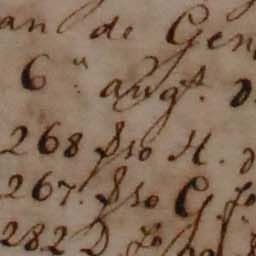 an de Gen
6.a aug.t d
268 fso H. d
267. fso G. fo
282 D fo